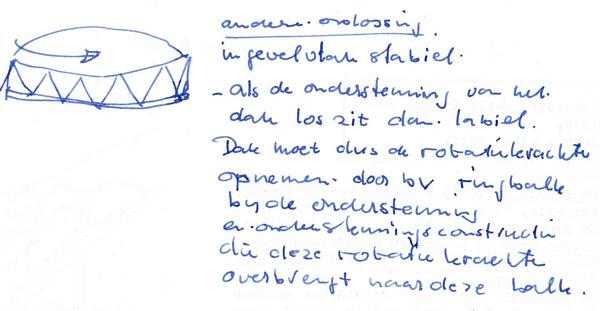 andere oplossing.
in gevelvlak stabiel.
- als de ondersteuning van het
dak los zit dan labiel.
Dak moet dus de rotatiekrachten
opnemen door bv ringbalk
bij de ondersteuning
en ondersteuningsconstructie
die deze rotatie krachten
overbrengt naar deze balk.